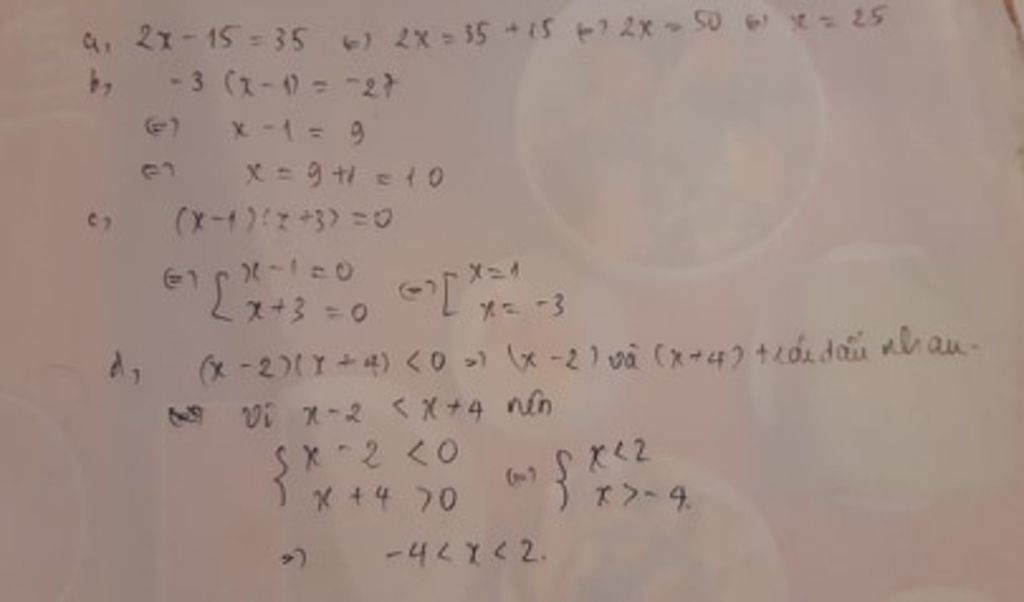 a, 2x - 15 = 35 <=> 2x = 35 + 15 <=> 2x = 50 <=> x = 25
b, -3 (x - 1) = -27
<=> x - 1 = 9
<=> x = 9 + 1 = 10
c, (x - 1)(x + 3) = 0
<=> { x - 1 = 0 <=> [ x = 1
x + 3 = 0 x = -3
d, (x - 2)(x + 4) < 0 => (x - 2) và (x + 4) trái dấu nhau.
vì x - 2 < x + 4 nên
{ x - 2 < 0 <=> { x < 2
x + 4 > 0 x > -4.
=> -4 < x < 2.